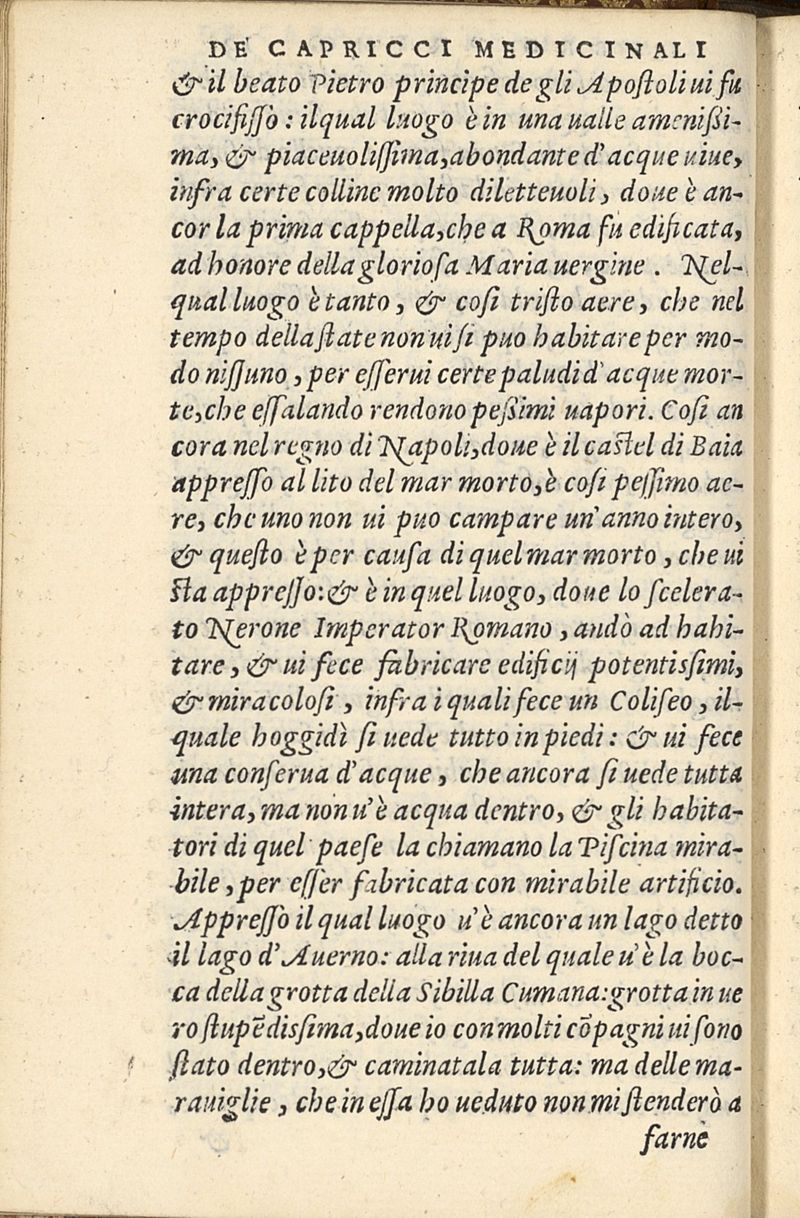 DE' CAPRICCI MEDICINALI
& il beato Pietro principe de gli Apostoli ui fu
crocifisso : ilqual luogo è in una ualle amenißi-
ma, & piaceuolissima, abondante d'acque uiue,
infra certe colline molto diletteuoli, doue è an-
cor la prima cappella, che a Roma fu edificata,
ad honore della gloriosa Maria uergine . Nel-
qual luogo è tanto, & cosi tristo aere, che nel
tempo della state non ui si puo habitare per mo-
do nissuno, per esserui certe paludi d'acque mor-
te, che essalando rendono peßimi uapori. Cosi an
cora nel regno di Napoli, doue è il castel di Baia
appresso al lito del mar morto, è cosi pessimo ae-
re, che uno non ui puo campare un'anno intero,
& questo è per causa di quel mar morto, che ui
sta appresso: & è in quel luogo, doue lo scelera-
to Nerone Imperator Romano, andò ad habi-
tare, & ui fece fabricare edificij potentissimi,
& miracolosi, infra i quali fece un Coliseo, il-
quale hoggidì si uede tutto in piedi : & ui fece
una conserua d'acque, che ancora si uede tutta
intera, ma non u'è acqua dentro, & gli habita-
tori di quel paese la chiamano la Piscina mira-
bile, per esser fabricata con mirabile artificio.
Appresso il qual luogo u'è ancora un lago detto
il lago d'Auerno: alla riua del quale u'è la boc-
ca della grotta della Sibilla Cumana: grotta in ue
ro stupēdissima, doue io con molti cōpagni ui sono
stato dentro, & caminatala tutta: ma delle ma-
rauiglie, che in essa ho ueduto non mi stenderò a
farne